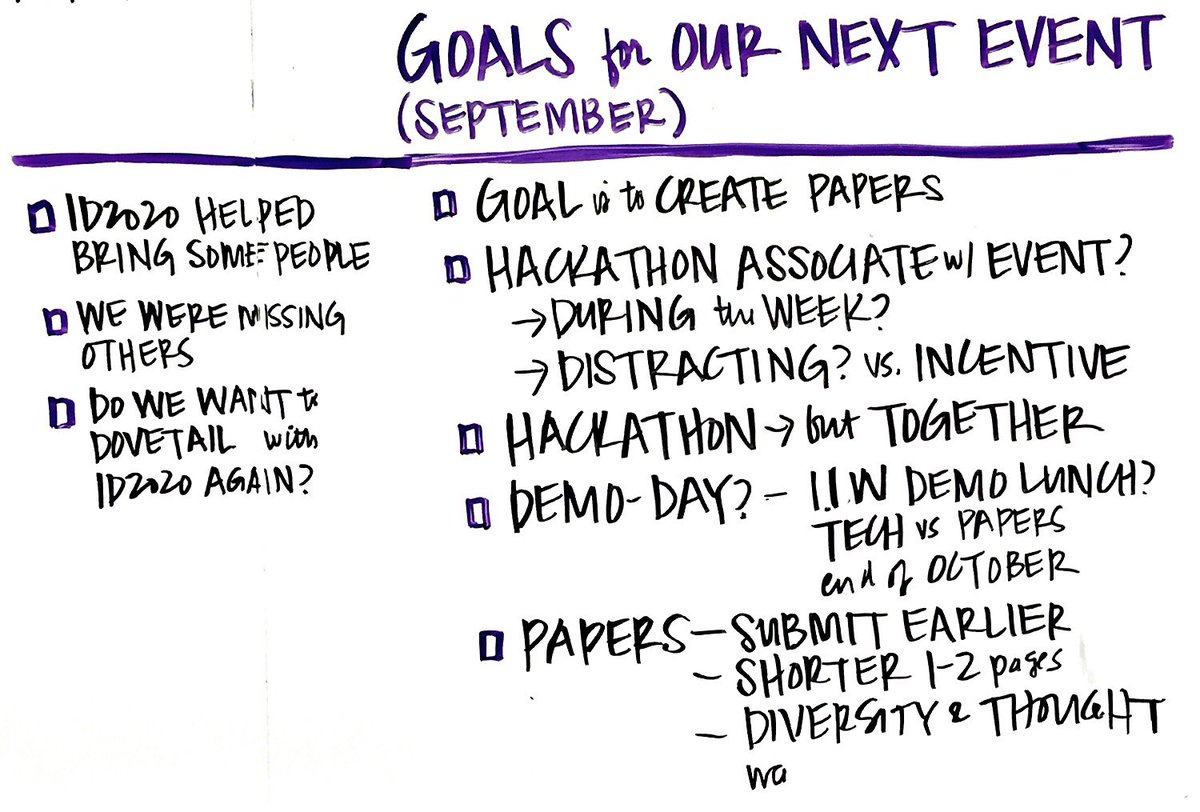 GOALS for OUR NEXT EVENT
(SEPTEMBER)
ID2020 HELPED
BRING SOME PEOPLE
WE WERE MISSING
OTHERS
DO WE WANT to
DOVETAIL with
ID2020 AGAIN?
GOAL is to CREATE PAPERS
HACKATHON ASSOCIATE w/ EVENT?
→ DURING the WEEK?
→ DISTRACTING? vs. INCENTIVE
HACKATHON → but TOGETHER
DEMO-DAY? - IIW DEMO LUNCH?
TECH vs PAPERS
end of OCTOBER
PAPERS - SUBMIT EARLIER
- SHORTER 1-2 pages
- DIVERSITY & THOUGHT
wa